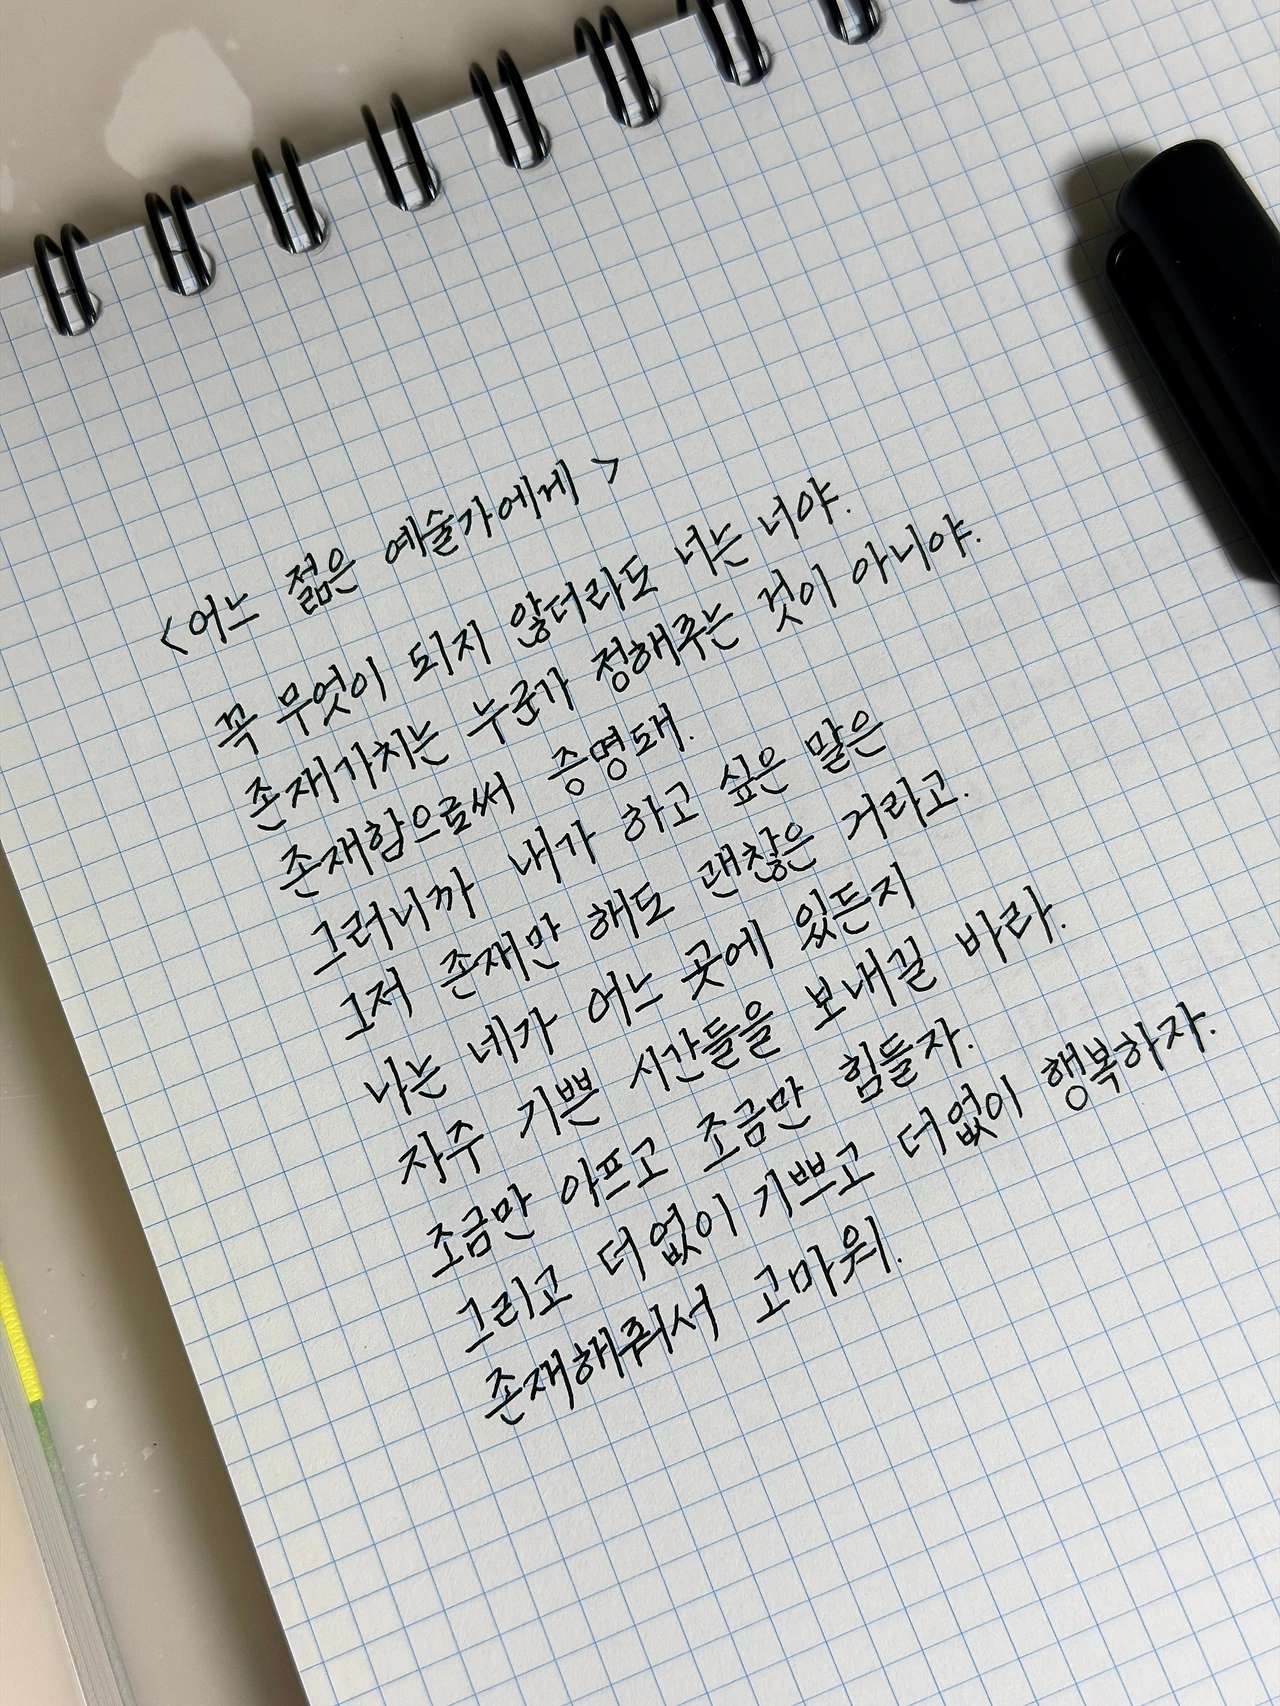 <어느 젊은 예술가에게>
꼭 무엇이 되지 않더라도 너는 너야.
존재가치는 누군가 정해주는 것이 아니야.
존재함으로써 증명돼.
그러니까 내가 하고 싶은 말은
그저 존재만 해도 괜찮은 거라고.
나는 네가 어느 곳에 있든지
자주 기쁜 시간들을 보내길 바라.
조금만 아프고 조금만 힘들자.
그리고 더없이 기쁘고 더없이 행복하자.
존재해줘서 고마워.